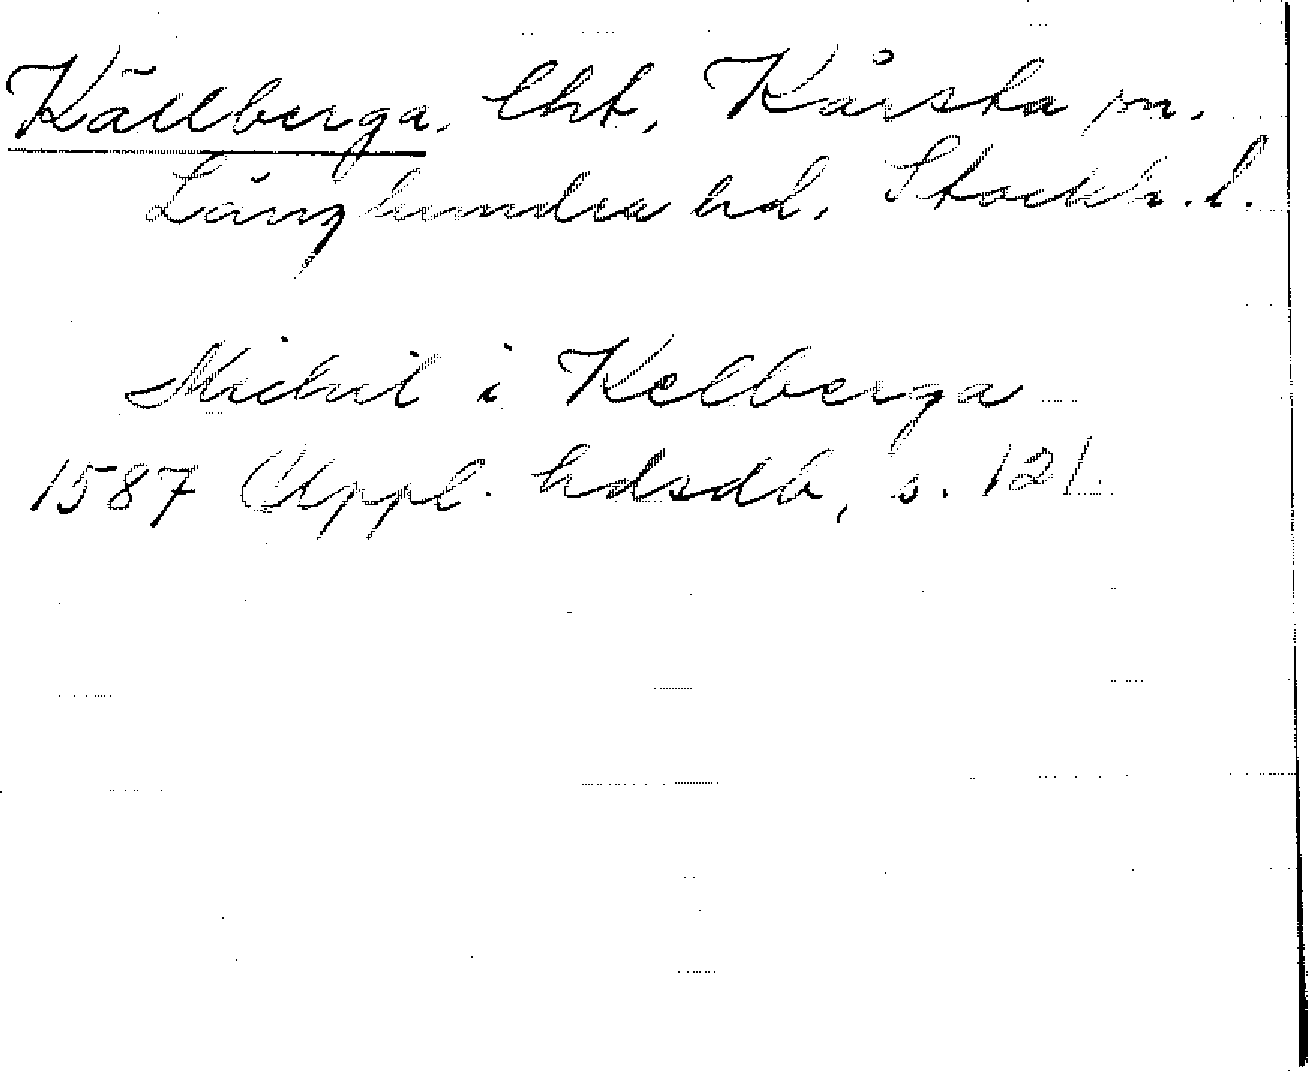 Källberga, Cht, Kårsta sn.
Långhundra hd, Stockh. l.
Michil i Kelberga
1587 Uppl. hdsdb, s. 121.